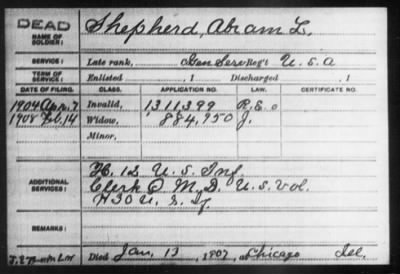 DEAD
NAME OF SOLDIER:
Shepherd, Abram L.
SERVICE:
Late rank, Gen Serv Reg't U.S.A
TERM OF SERVICE:
Enlisted , 1 Discharged , 1
DATE OF FILING. CLASS. APPLICATION NO. LAW. CERTIFICATE NO.
1904 Apr. 7 Invalid, 1311399
1908 Feb. 14 Widow, 884,950 J.
Minor,
ADDITIONAL SERVICES:
H. 12 U.S. Inf.
Clerk Q M.D. U.S. Vol.
H 30 U.S. If
REMARKS:
Died Jan. 13, 1907, at Chicago Ill.